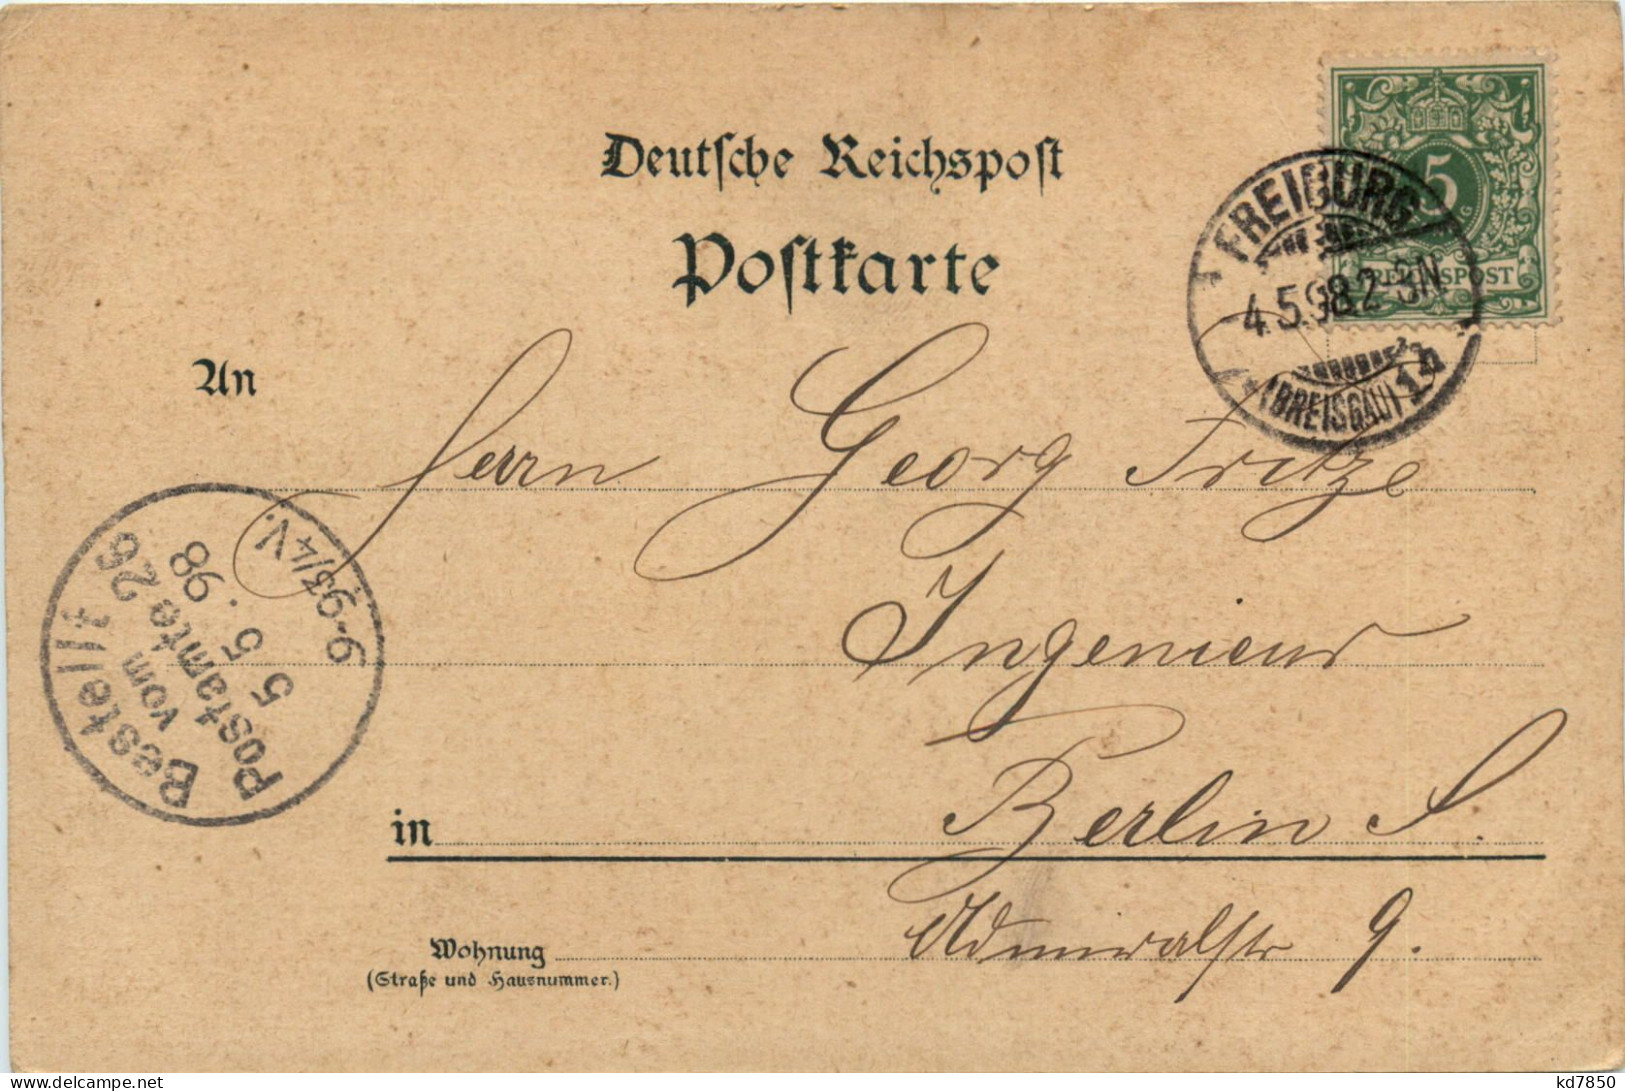 Deutsche Reichspost
Postkarte
5
REICHSPOST
FREIBURG
4.5.98.2-3N
(BREISGAU)
An
Herrn Georg Fritze
Ingenieur
in Berlin S.
Wohnung Admiralstr 9.
(Straße und Hausnummer.)
Bestellt
vom
Postamte 26
5 5. 98
9-9 3/4 V.
kd7850